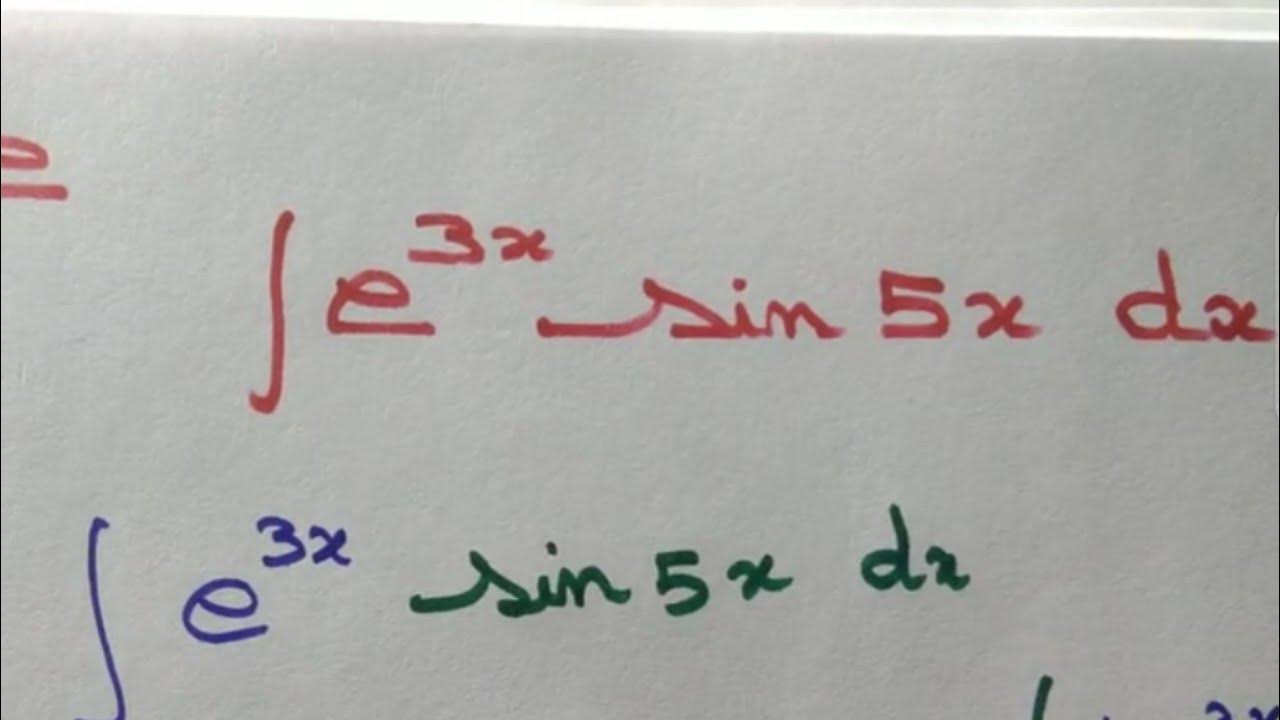 ∫ e^{3x} sin 5x dx
∫ e^{3x} sin 5x dx